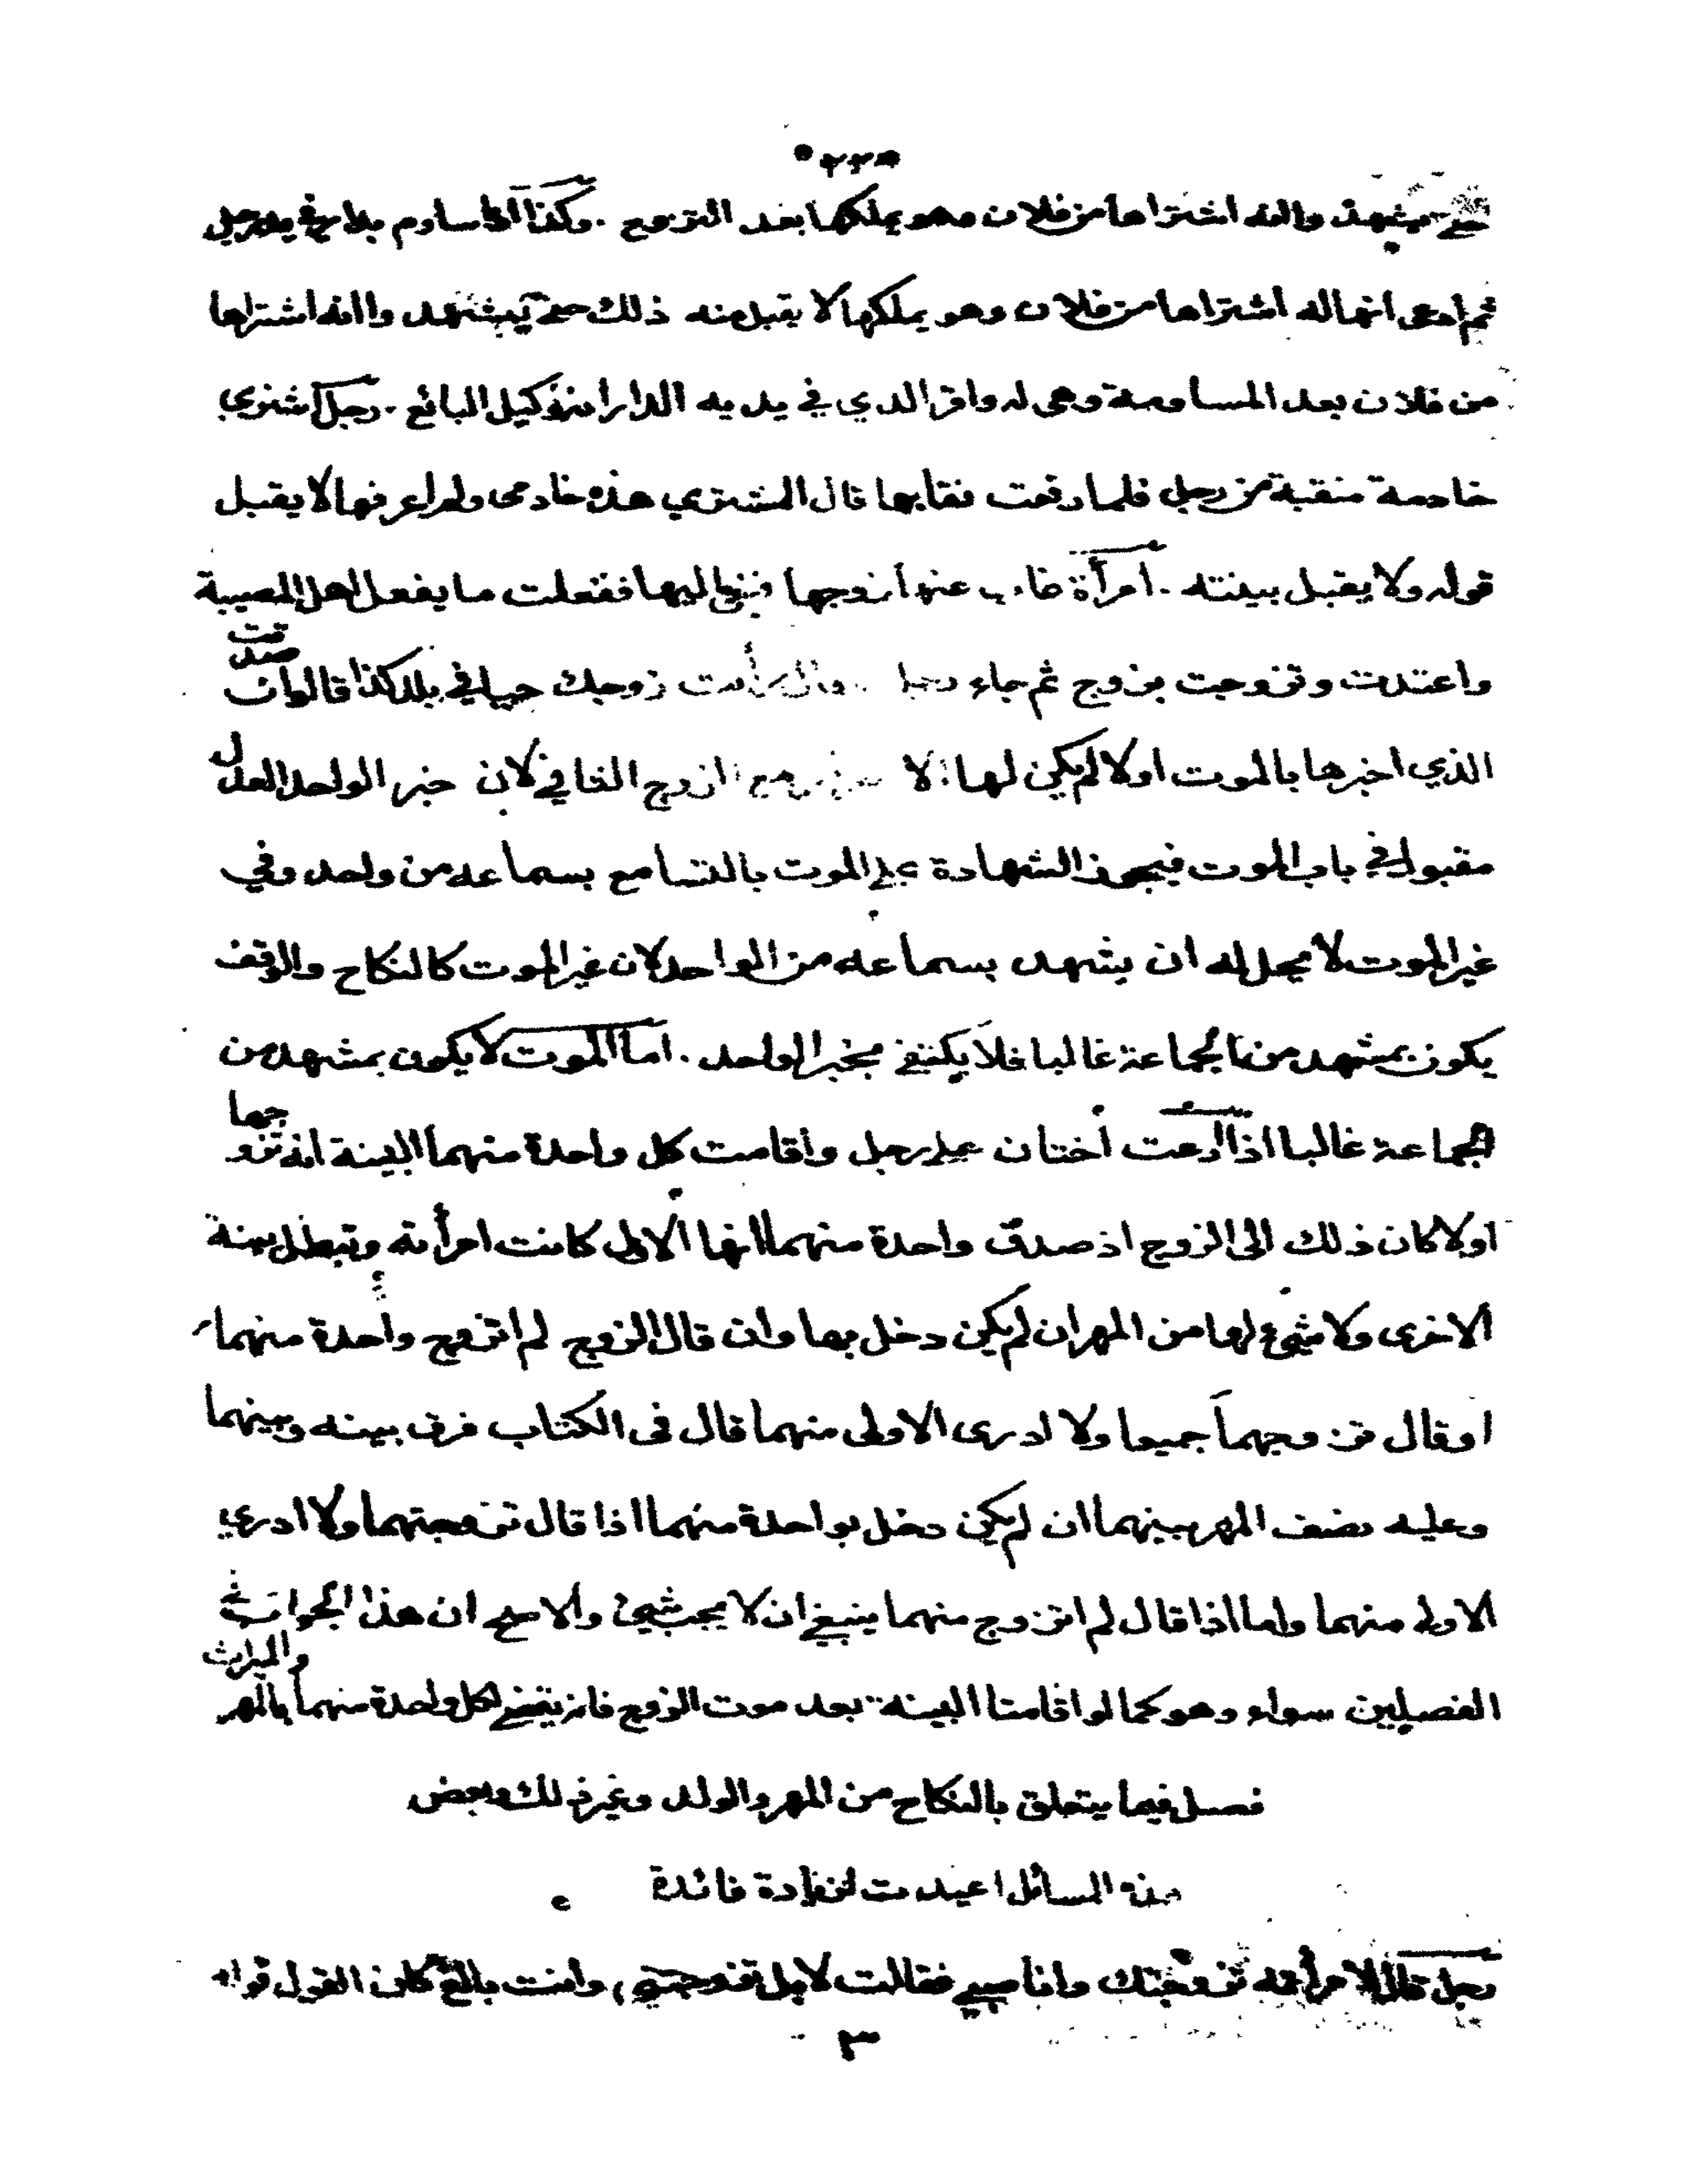 حتى يشهدوا انه اشتراها من فلان وهو يملكها بعد التزوج . وكذا اذا ساوم بدار في يد رجل
ثم ادعى انها له اشتراها من فلان وهو يملكها لا يقبل منه ذلك حتى يشهدوا انه اشتراها
من فلان بعد المساومة وهي له واقر الذي في يديه الدار انه وكيل البائع . رجل اشترى
خادمة منقبة من رجل فلما رفعت نقابها قال المشتري هذه خادمي ولم اعرفها لا يقبل
قوله ولا يقبل بينته . امرأة غاب عنها زوجها فنعي اليها ففعلت ما يفعل اهل المصيبة
واعتدت وتزوجت بزوج ثم جاء رجل وقال رأيت زوجك حيا في بلد كذا قالوا ان صدقت
الذي اخبرها بالموت اولا لم يكن لها الا مع الزوج الثاني لان خبر الواحد العدل
مقبول في باب الموت فيجوز الشهادة على الموت بالتسامع بسماعه من واحد وفي
غير الموت لا يحل له ان يشهد بسماعه من الواحد لان غير الموت كالنكاح والوقف
يكون بمشهد من الجماعة غالبا فلا يكتفي بخبر الواحد . اما الموت لا يكون بمشهد من
الجماعة غالبا اذا ادعت اختان على رجل واقامت كل واحدة منهما البينة انه تزوجها
اولا كان ذلك الى الزوج اذ صدق واحدة منهما انها الاولى كانت امرأته وتبطل بينة
الاخرى ولا شيء لها من المهر ان لم يكن دخل بها وان قال الزوج لم اتزوج واحدة منهما
او قال تزوجهما جميعا ولا ادرى الاولى منهما قال في الكتاب فرق بينه وبينهما
وعليه نصف المهر بينهما ان لم يكن دخل بواحدة منهما اذا قال تزوجتهما ولا ادري
الاولى منهما واما اذا قال لم اتزوج منهما ينبغي ان لا يجب شيئ والاصح ان هذا الجواب في
الفصلين سواء وهو كما لو اقامتا البينة بعد موت الزوج فانه يقضي لكل واحدة منهما بالمهر والميراث
فصل فيما يتعلق بالنكاح من المهر والولد وغير ذلك وبعض
هذه المسائل اعيدت لافادة فائدة
رجل قال لامرأته تزوجتك وانا صبي فقالت لا بل تزوجتني وانت بالغ كان القول قوله